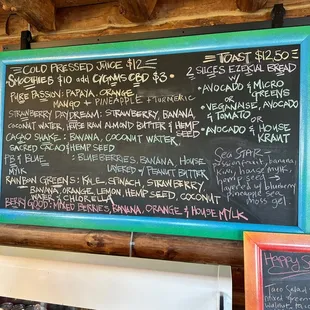 COLD PRESSED JUICE $12
SMOOTHIES $10 add CYGNUS CBD $3
PURE PASSION: PAPAYA, ORANGE,
MANGO + PINEAPPLE + TURMERIC
STRAWBERRY DAYDREAM: STRAWBERRY, BANANA,
COCONUT WATER, HOUSE RAW ALMOND BUTTER & HEMP SEED
CACAO SHAKE: BANANA, COCONUT WATER,
SACRED CACAO & HEMP SEED
PB & BLUE: BLUEBERRIES, BANANA, HOUSE
MYLK LAYERED w/ PEANUT BUTTER
RAINBOW GREENS: KALE, SPINACH, STRAWBERRY,
BANANA, ORANGE, LEMON, HEMP SEED, COCONUT
WATER & CHLORELLA
BERRY GOOD: MIXED BERRIES, BANANA, ORANGE & HOUSE MYLK
TOAST $12.50
2 SLICES EZEKIAL BREAD
w/
• AVOCADO & MICRO
GREENS
or
• VEGANAISE, AVOCADO
& TOMATO
or
• AVOCADO & HOUSE
KRAUT
Sea STAR:
banana,
kiwi, house mylk,
hemp seed →
layered w/ blueberry
pineapple SEA
moss gel
Happy S
Taco Salad
mixed greens
walnut, ta